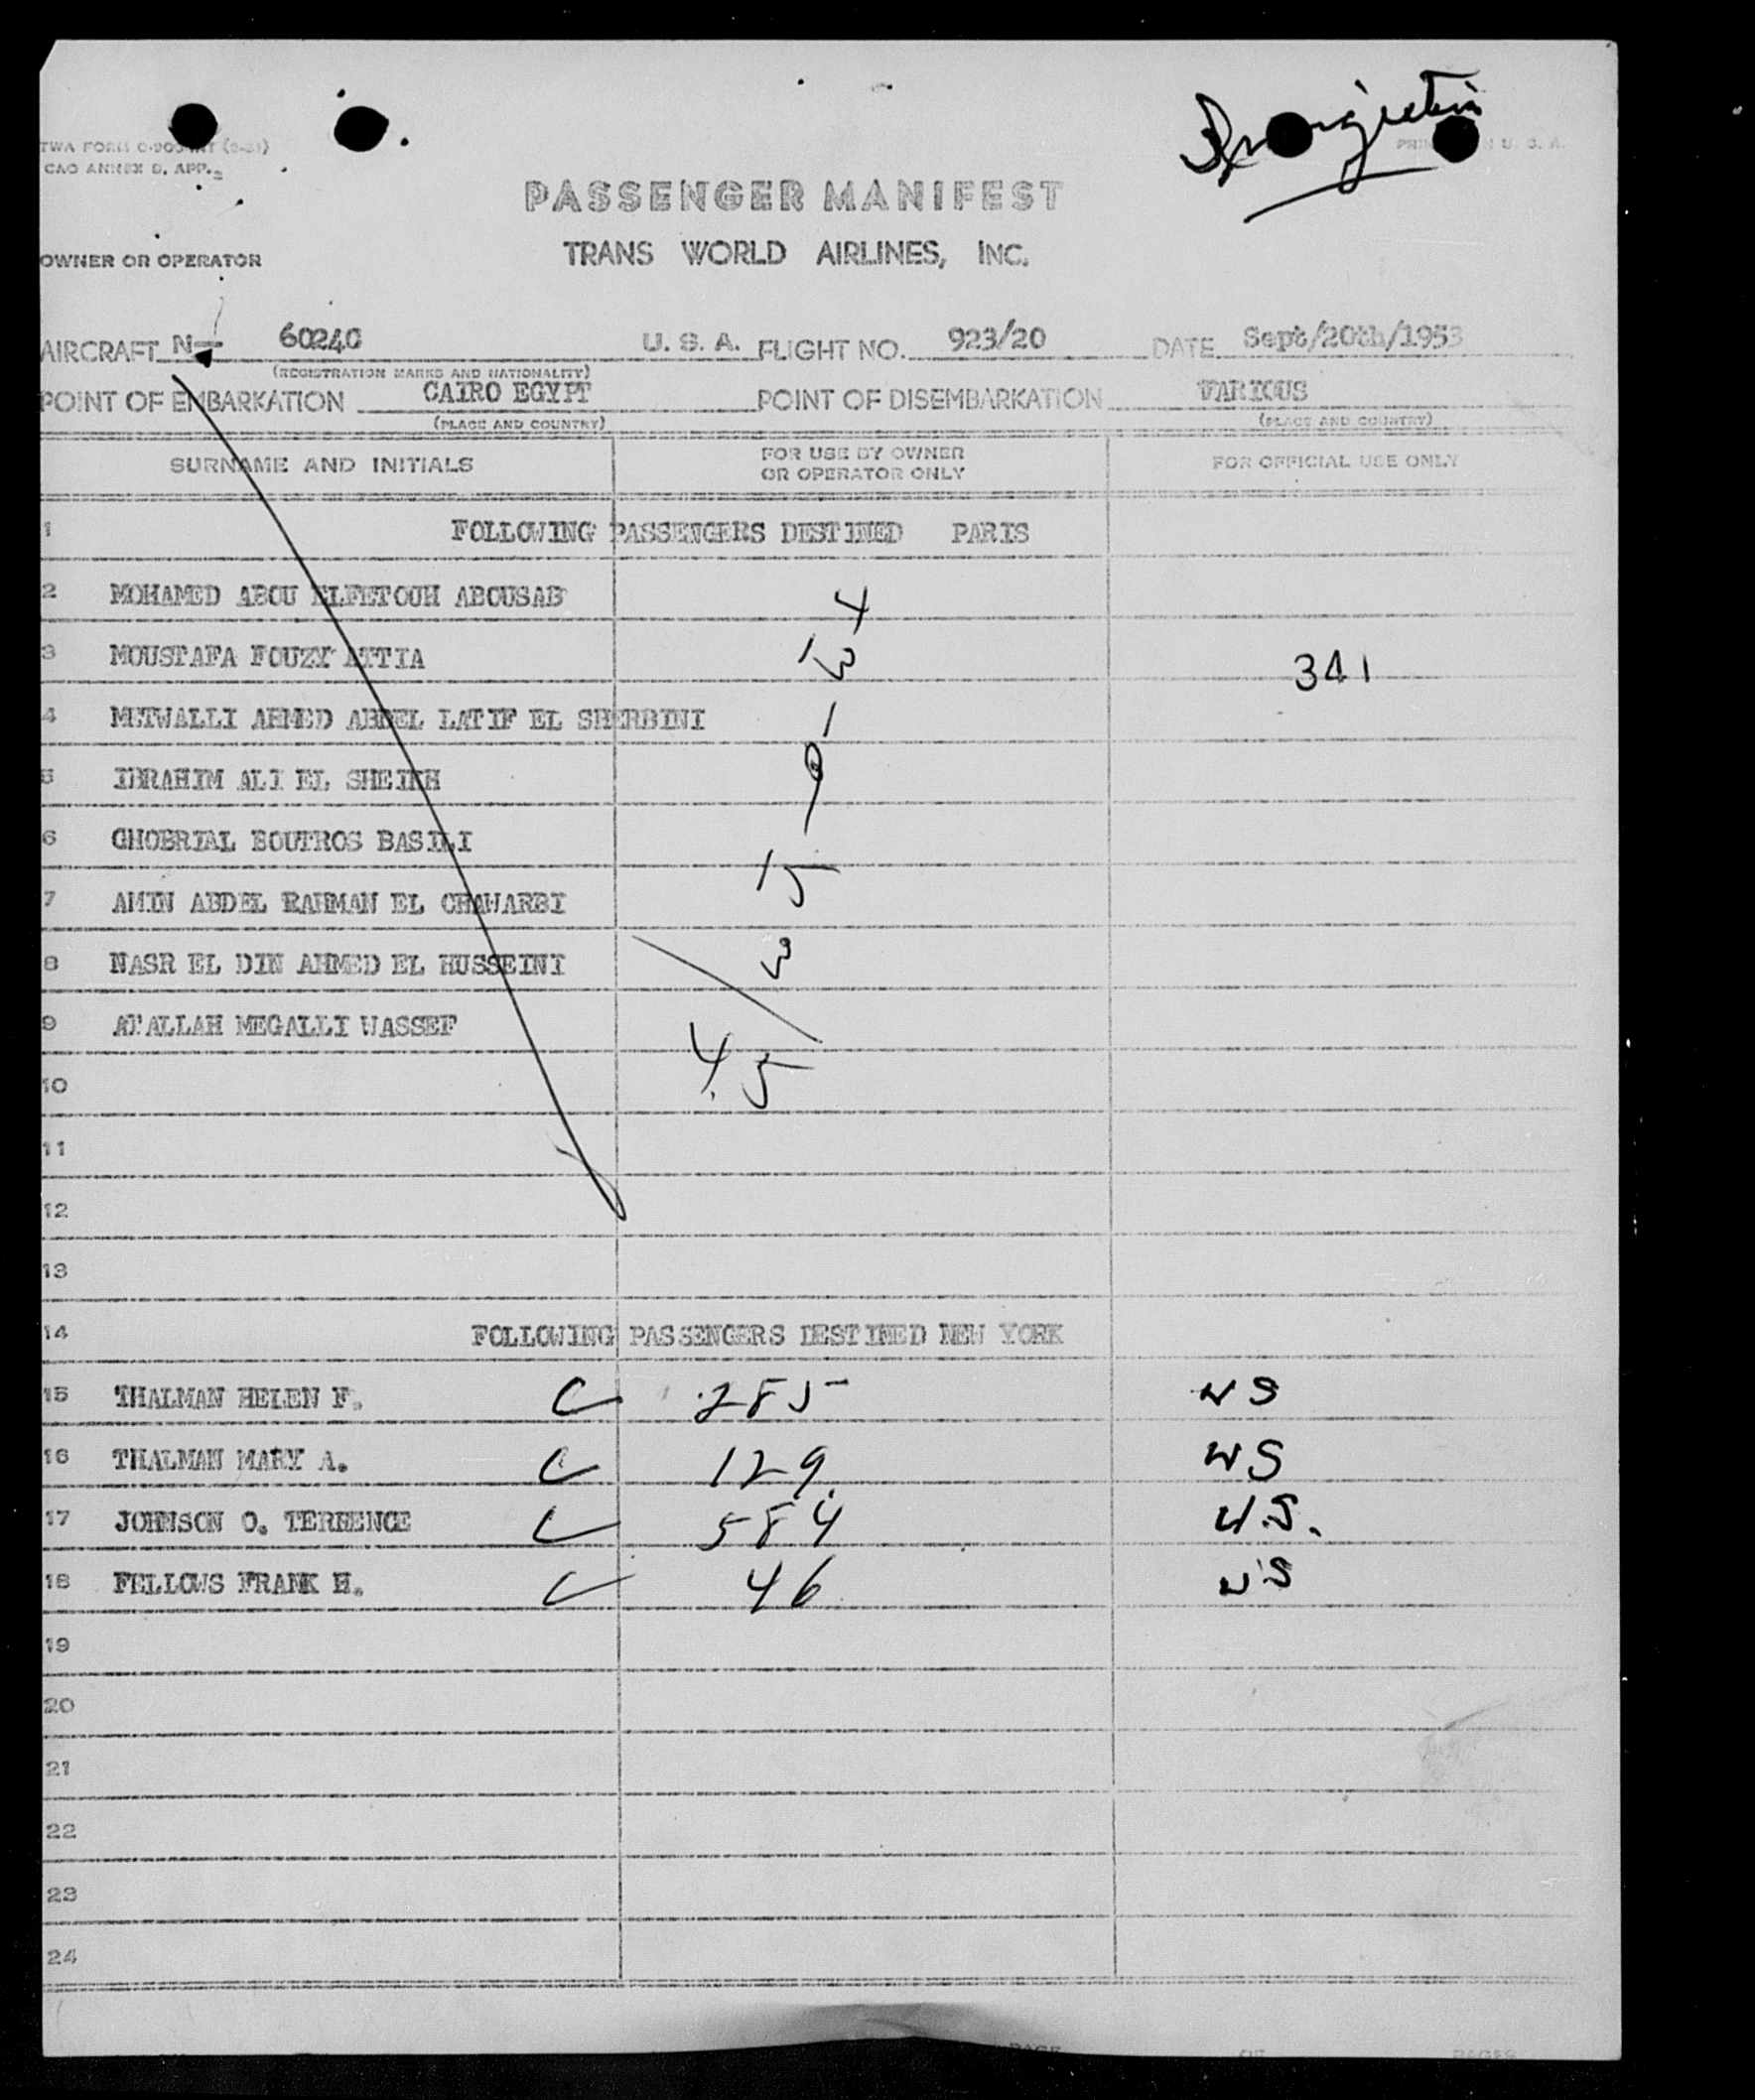 TWA FORM
CAO ANNEX D. APP.
PASSENGER MANIFEST
OWNER OR OPERATOR TRANS WORLD AIRLINES, INC.
AIRCRAFT N- 6024C U. S. A. FLIGHT NO. 923/20 DATE Sept/20th/1953
(REGISTRATION MARKS AND NATIONALITY)
POINT OF EMBARKATION CAIRO EGYPT POINT OF DISEMBARKATION VARIOUS
(PLACE AND COUNTRY) (PLACE AND COUNTRY)
SURNAME AND INITIALS FOR USE BY OWNER OR OPERATOR ONLY FOR OFFICIAL USE ONLY
1 FOLLOWING PASSENGERS DESTINED PARIS
2 MOHAMED ABOU ELFETOUH ABOUSAB
3 MOUSTAFA FOUZY ATTIA 341
4 METWALLI AHMED ABDEL LATIF EL SHERBINI
5 IBRAHIM ALI EL SHEIKH
6 GHOBRIAL BOUTROS BASILI
7 AMIN ABDEL RAHMAN EL CHAWARBI
8 NASR EL DIN AHMED EL HUSSEINI
9 ATALLAH MEGALLI WASSEF
10
11
12
13
14 FOLLOWING PASSENGERS DESTINED NEW YORK
15 THALMAN HELEN F. 285 US
16 THALMAN MARY A. 129 US
17 JOHNSON O. TERRENCE 584 U.S.
18 FELLOWS FRANK H. 46 US
19
20
21
22
23
24
PAGE OF PAGES